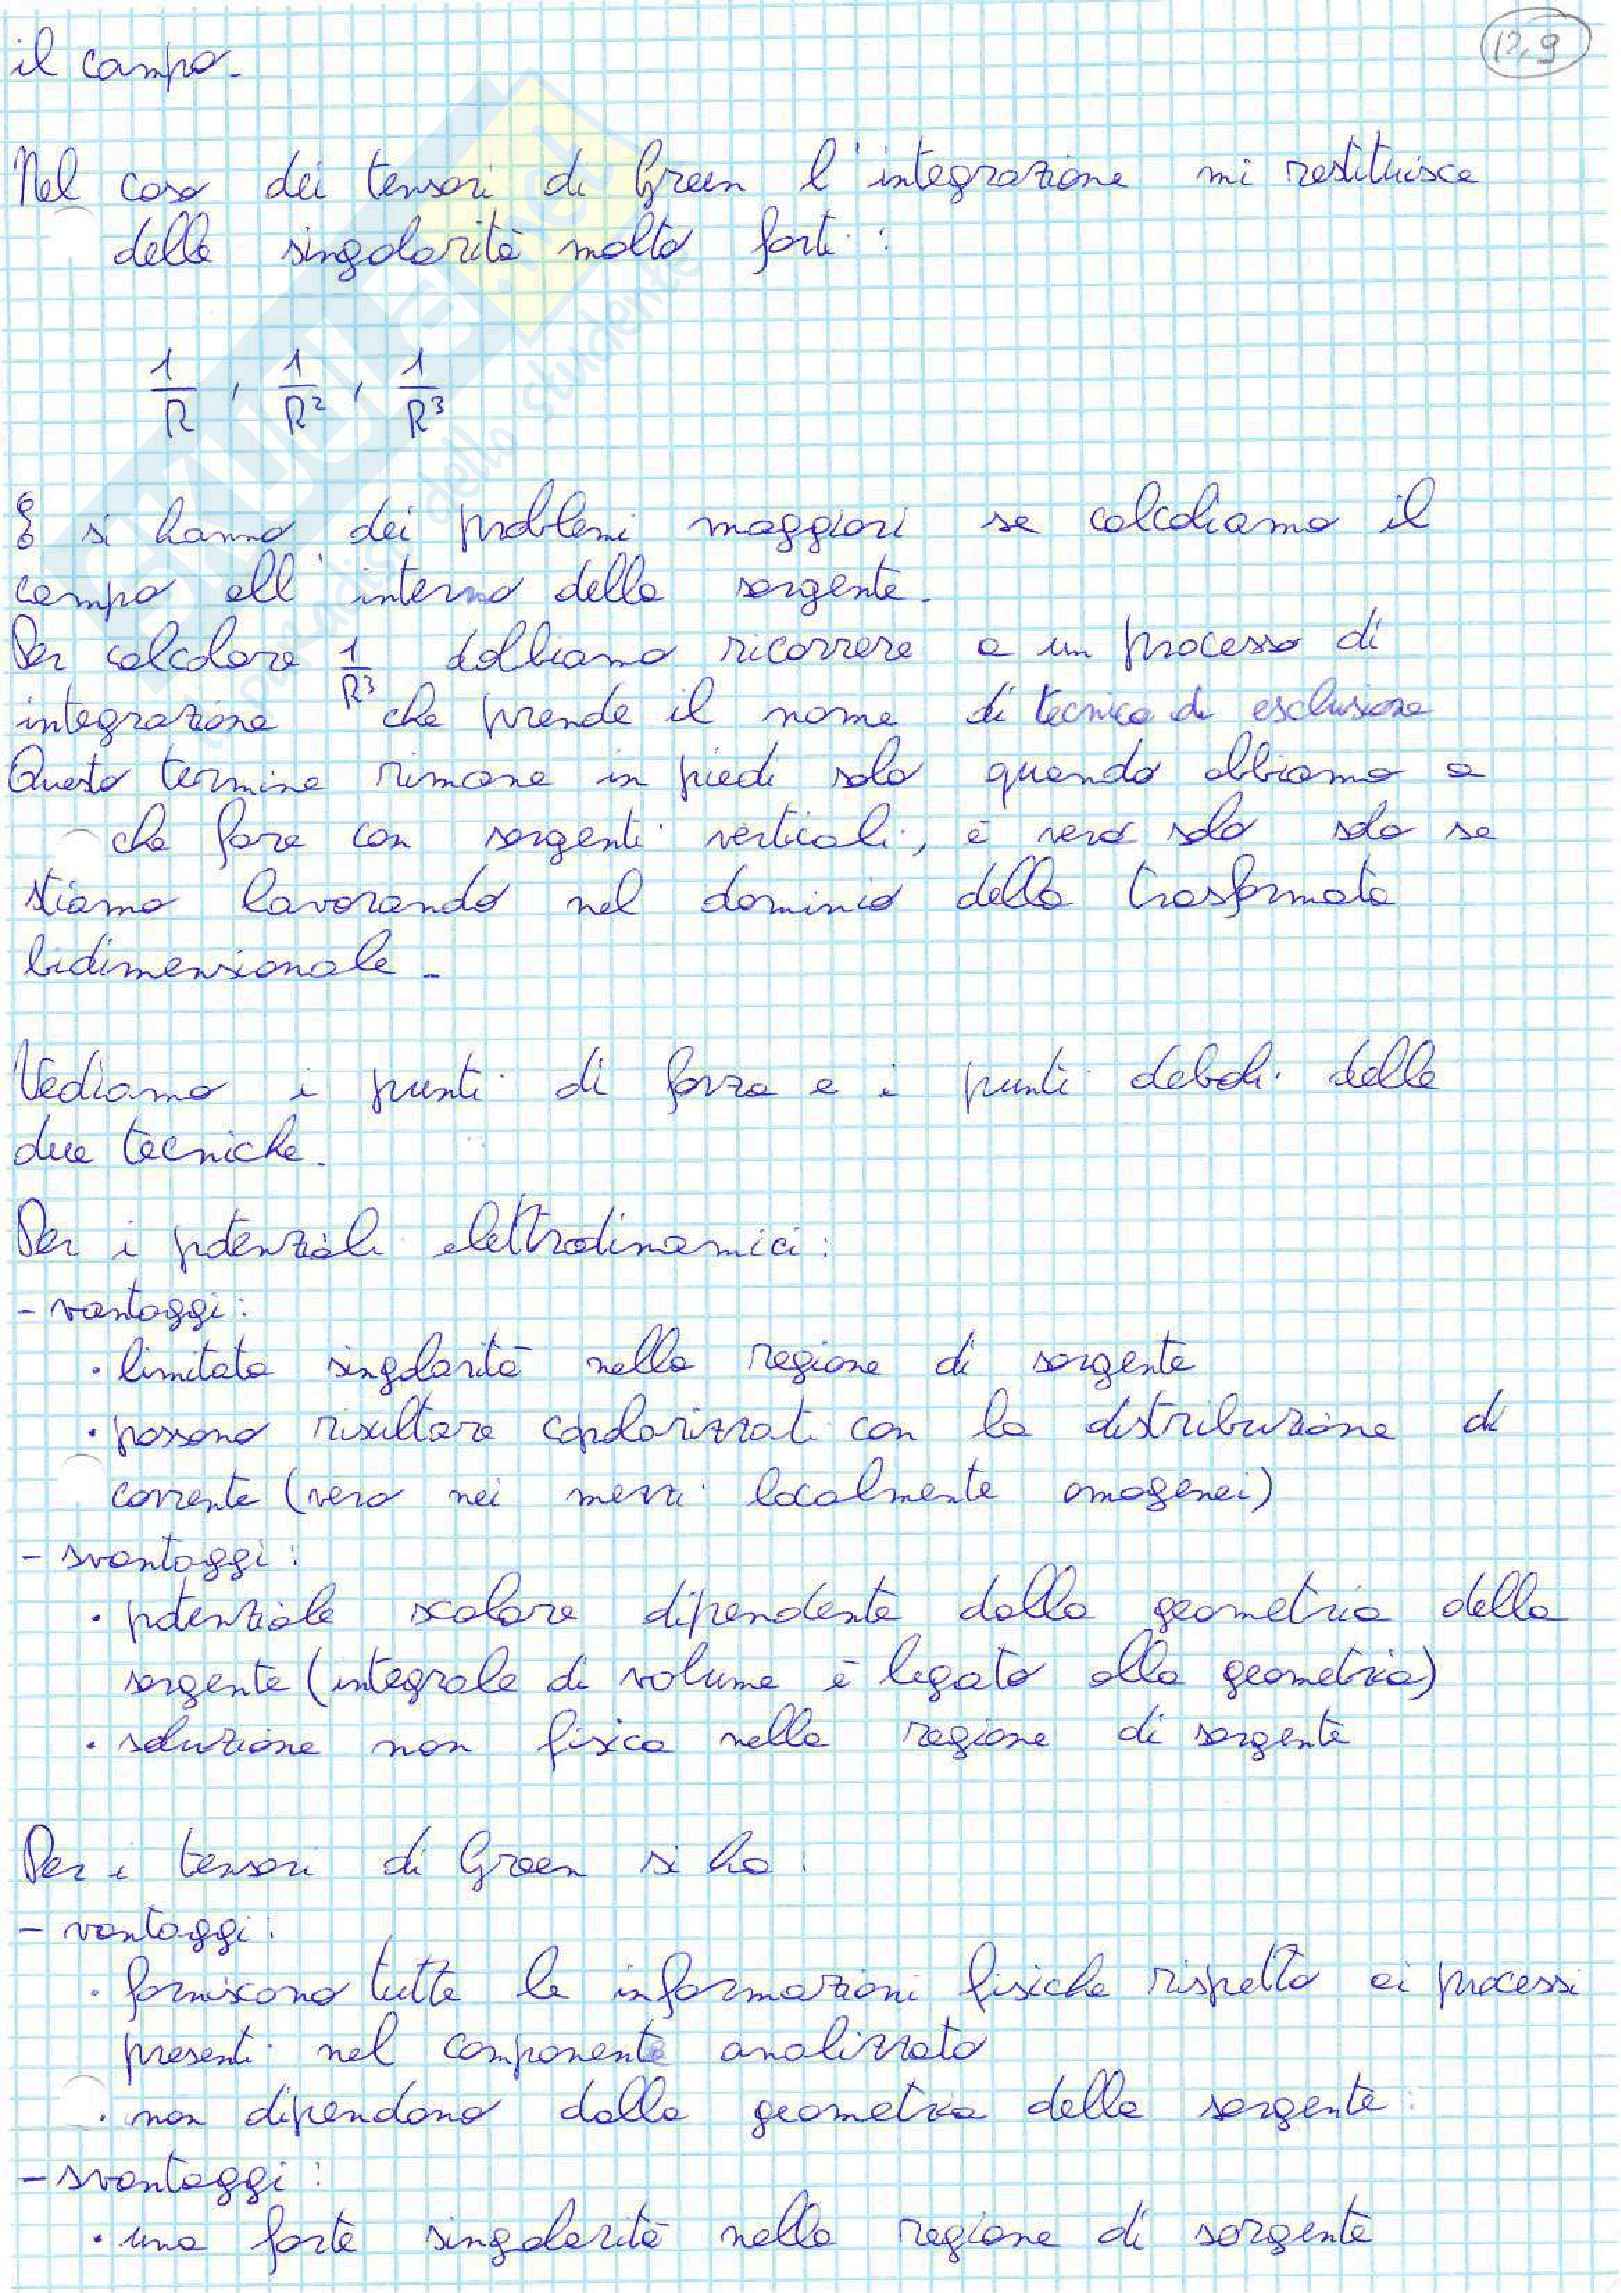 P,9
il campo.
Nel caso dei tensori di Green l'integrazione mi restituisce
delle singolarità molto forti:
1/R , 1/R² , 1/R³
E si hanno dei problemi maggiori se calcoliamo il
campo all'interno della sorgente.
Per calcolare 1/R³ dobbiamo ricorrere a un processo di
integrazione che prende il nome di tecnica di esclusione
Questo termine rimane in piedi solo quando abbiamo a
che fare con sorgenti verticali, è vero solo solo se
stiamo lavorando nel dominio della trasformata
bidimensionale.
Vediamo i punti di forza e i punti deboli delle
due tecniche.
Per i potenziali elettrodinamici:
- vantaggi:
· limitata singolarità nella regione di sorgente
· possono risultare copolarizzati con la distribuzione di
corrente (vero nei mezzi localmente omogenei)
- svantaggi:
· potenziale scalare dipendente dalla geometria della
sorgente (integrale di volume è legato alla geometria)
· soluzione non fisica nella regione di sorgente
Per i tensori di Green si ha:
- vantaggi:
· forniscono tutte le informazioni fisiche rispetto ai processi
presenti nel componente analizzato
· non dipendono dalla geometria della sorgente
- svantaggi:
· una forte singolarità nella regione di sorgente
SKUOLA.net
dello studente